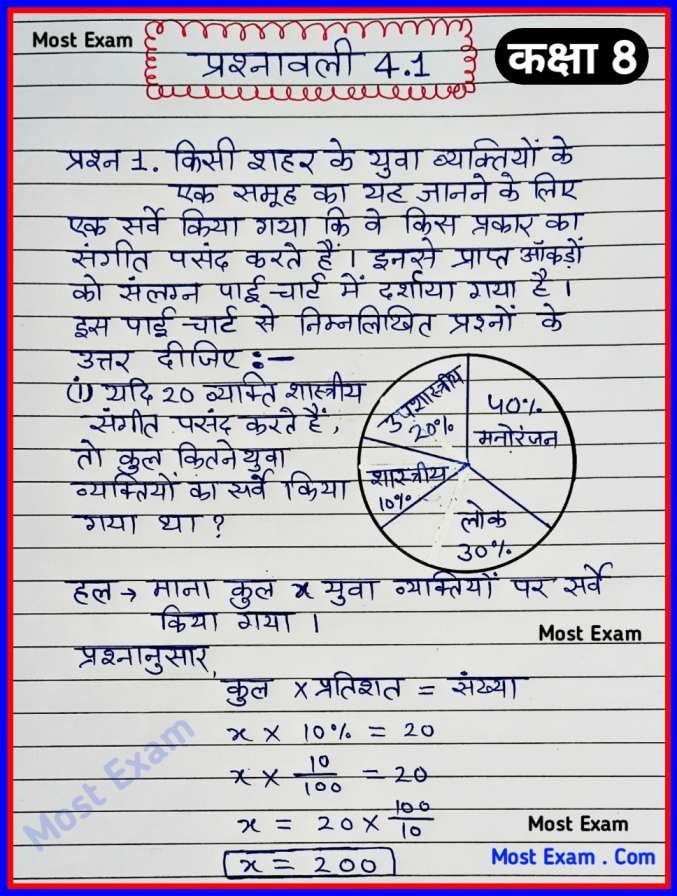 Most Exam
प्रश्नावली 4.1
कक्षा 8
प्रश्न 1. किसी शहर के युवा व्यक्तियों के
एक समूह का यह जानने के लिए
एक सर्वे किया गया कि वे किस प्रकार का
संगीत पसंद करते हैं। इनसे प्राप्त आँकड़ों
को संलग्न पाई-चार्ट में दर्शाया गया है।
इस पाई-चार्ट से निम्नलिखित प्रश्नों के
उत्तर दीजिए :-
(i) यदि 20 व्यक्ति शास्त्रीय
संगीत पसंद करते हैं,
तो कुल कितने युवा
व्यक्तियों का सर्वे किया
गया था ?
उपशास्त्रीय
20%
40%
मनोरंजन
शास्त्रीय
10%
लोक
30%
हल → माना कुल x युवा व्यक्तियों पर सर्वे
किया गया ।
Most Exam
प्रश्नानुसार,
कुल × प्रतिशत = संख्या
x × 10% = 20
x × 10/100 = 20
x = 20 × 100/10
x = 200
Most Exam
Most Exam
Most Exam . Com